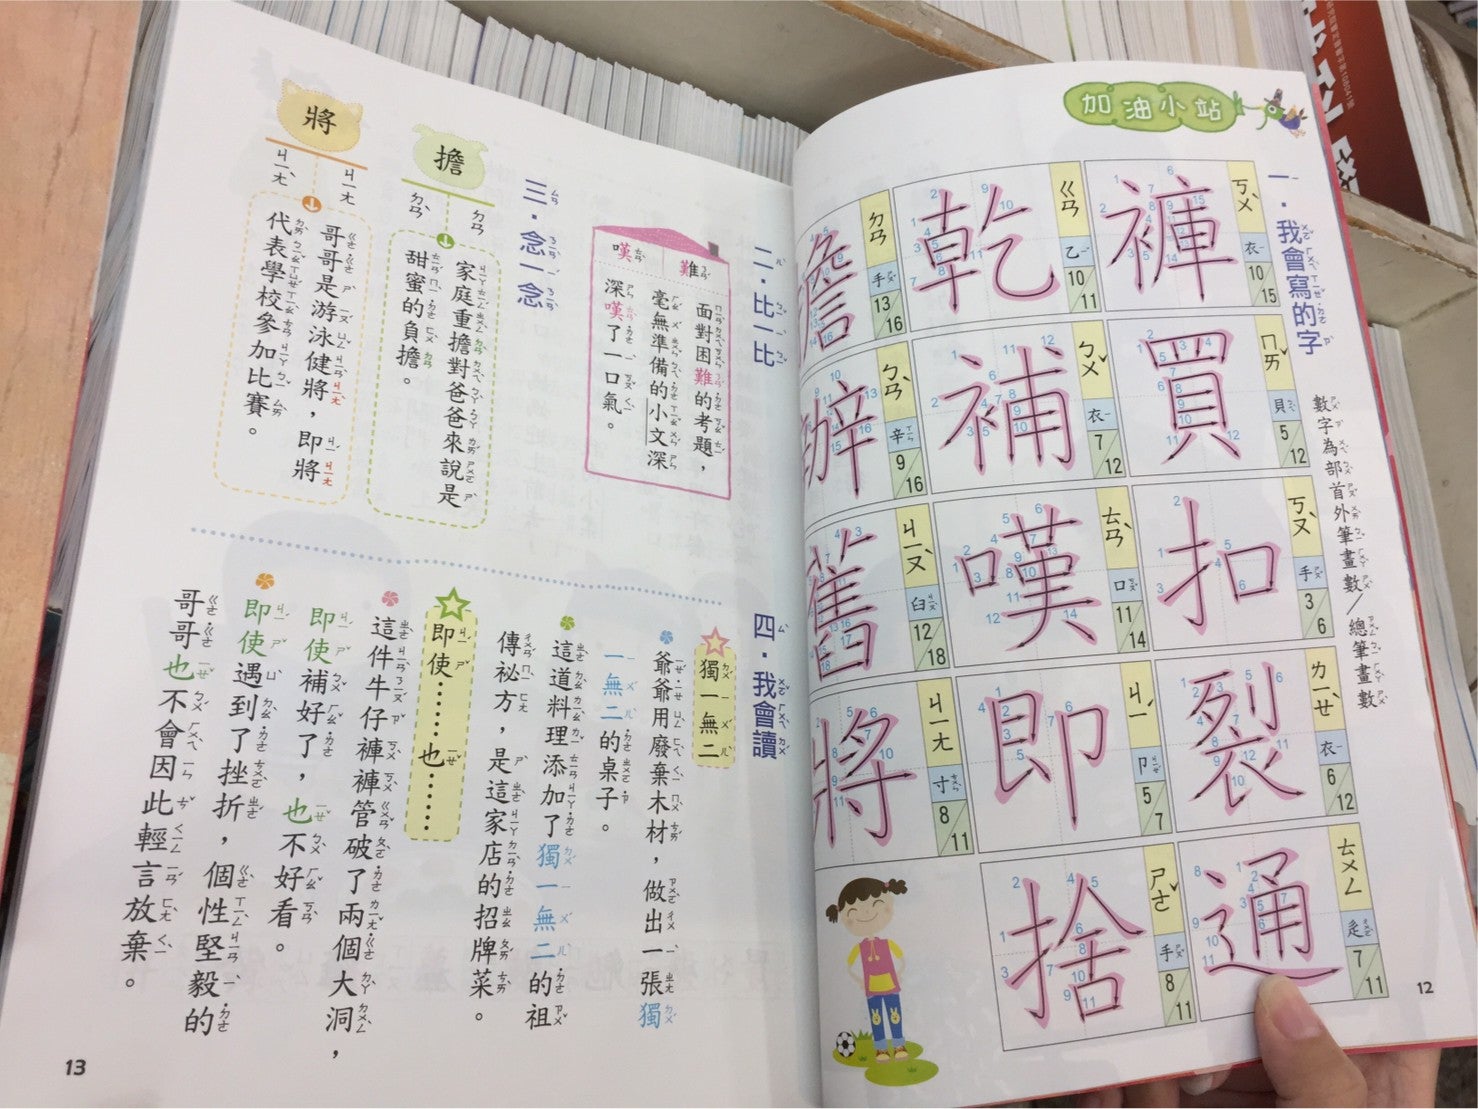 加油小站
一．我會寫的字
數字為部首外筆畫數／總筆畫數
褲 ㄎㄨˋ 衣 10/15
買 ㄇㄞˇ 貝 5/12
扣 ㄎㄡˋ 手 3/6
裂 ㄌㄧㄝˋ 衣 6/12
通 ㄊㄨㄥ 辵 7/11
乾 ㄍㄢ 乙 10/11
補 ㄅㄨˇ 衣 7/12
嘆 ㄊㄢˋ 口 11/14
即 ㄐㄧˊ 卩 5/7
捨 ㄕㄜˇ 手 8/11
擔 ㄉㄢ 手 13/16
辦 ㄅㄢˋ 辛 9/16
舊 ㄐㄧㄡˋ 臼 12/18
將 ㄐㄧㄤ 寸 8/11
12
二．比一比
難
嘆
面對困難的考題，
毫無準備的小文深
深嘆了一口氣。
三．念一念
擔
ㄉㄢ
ㄉㄢˋ
家庭重擔對爸爸來說是
甜蜜的負擔。
將
ㄐㄧㄤ
ㄐㄧㄤˋ
哥哥是游泳健將，即將
代表學校參加比賽。
四．我會讀
獨一無二
爺爺用廢棄木材，做出一張獨
一無二的桌子。
這道料理添加了獨一無二的祖
傳祕方，是這家店的招牌菜。
即使……也……
這件牛仔褲褲管破了兩個大洞，
即使補好了，也不好看。
即使遇到了挫折，個性堅毅的
哥哥也不會因此輕言放棄。
13